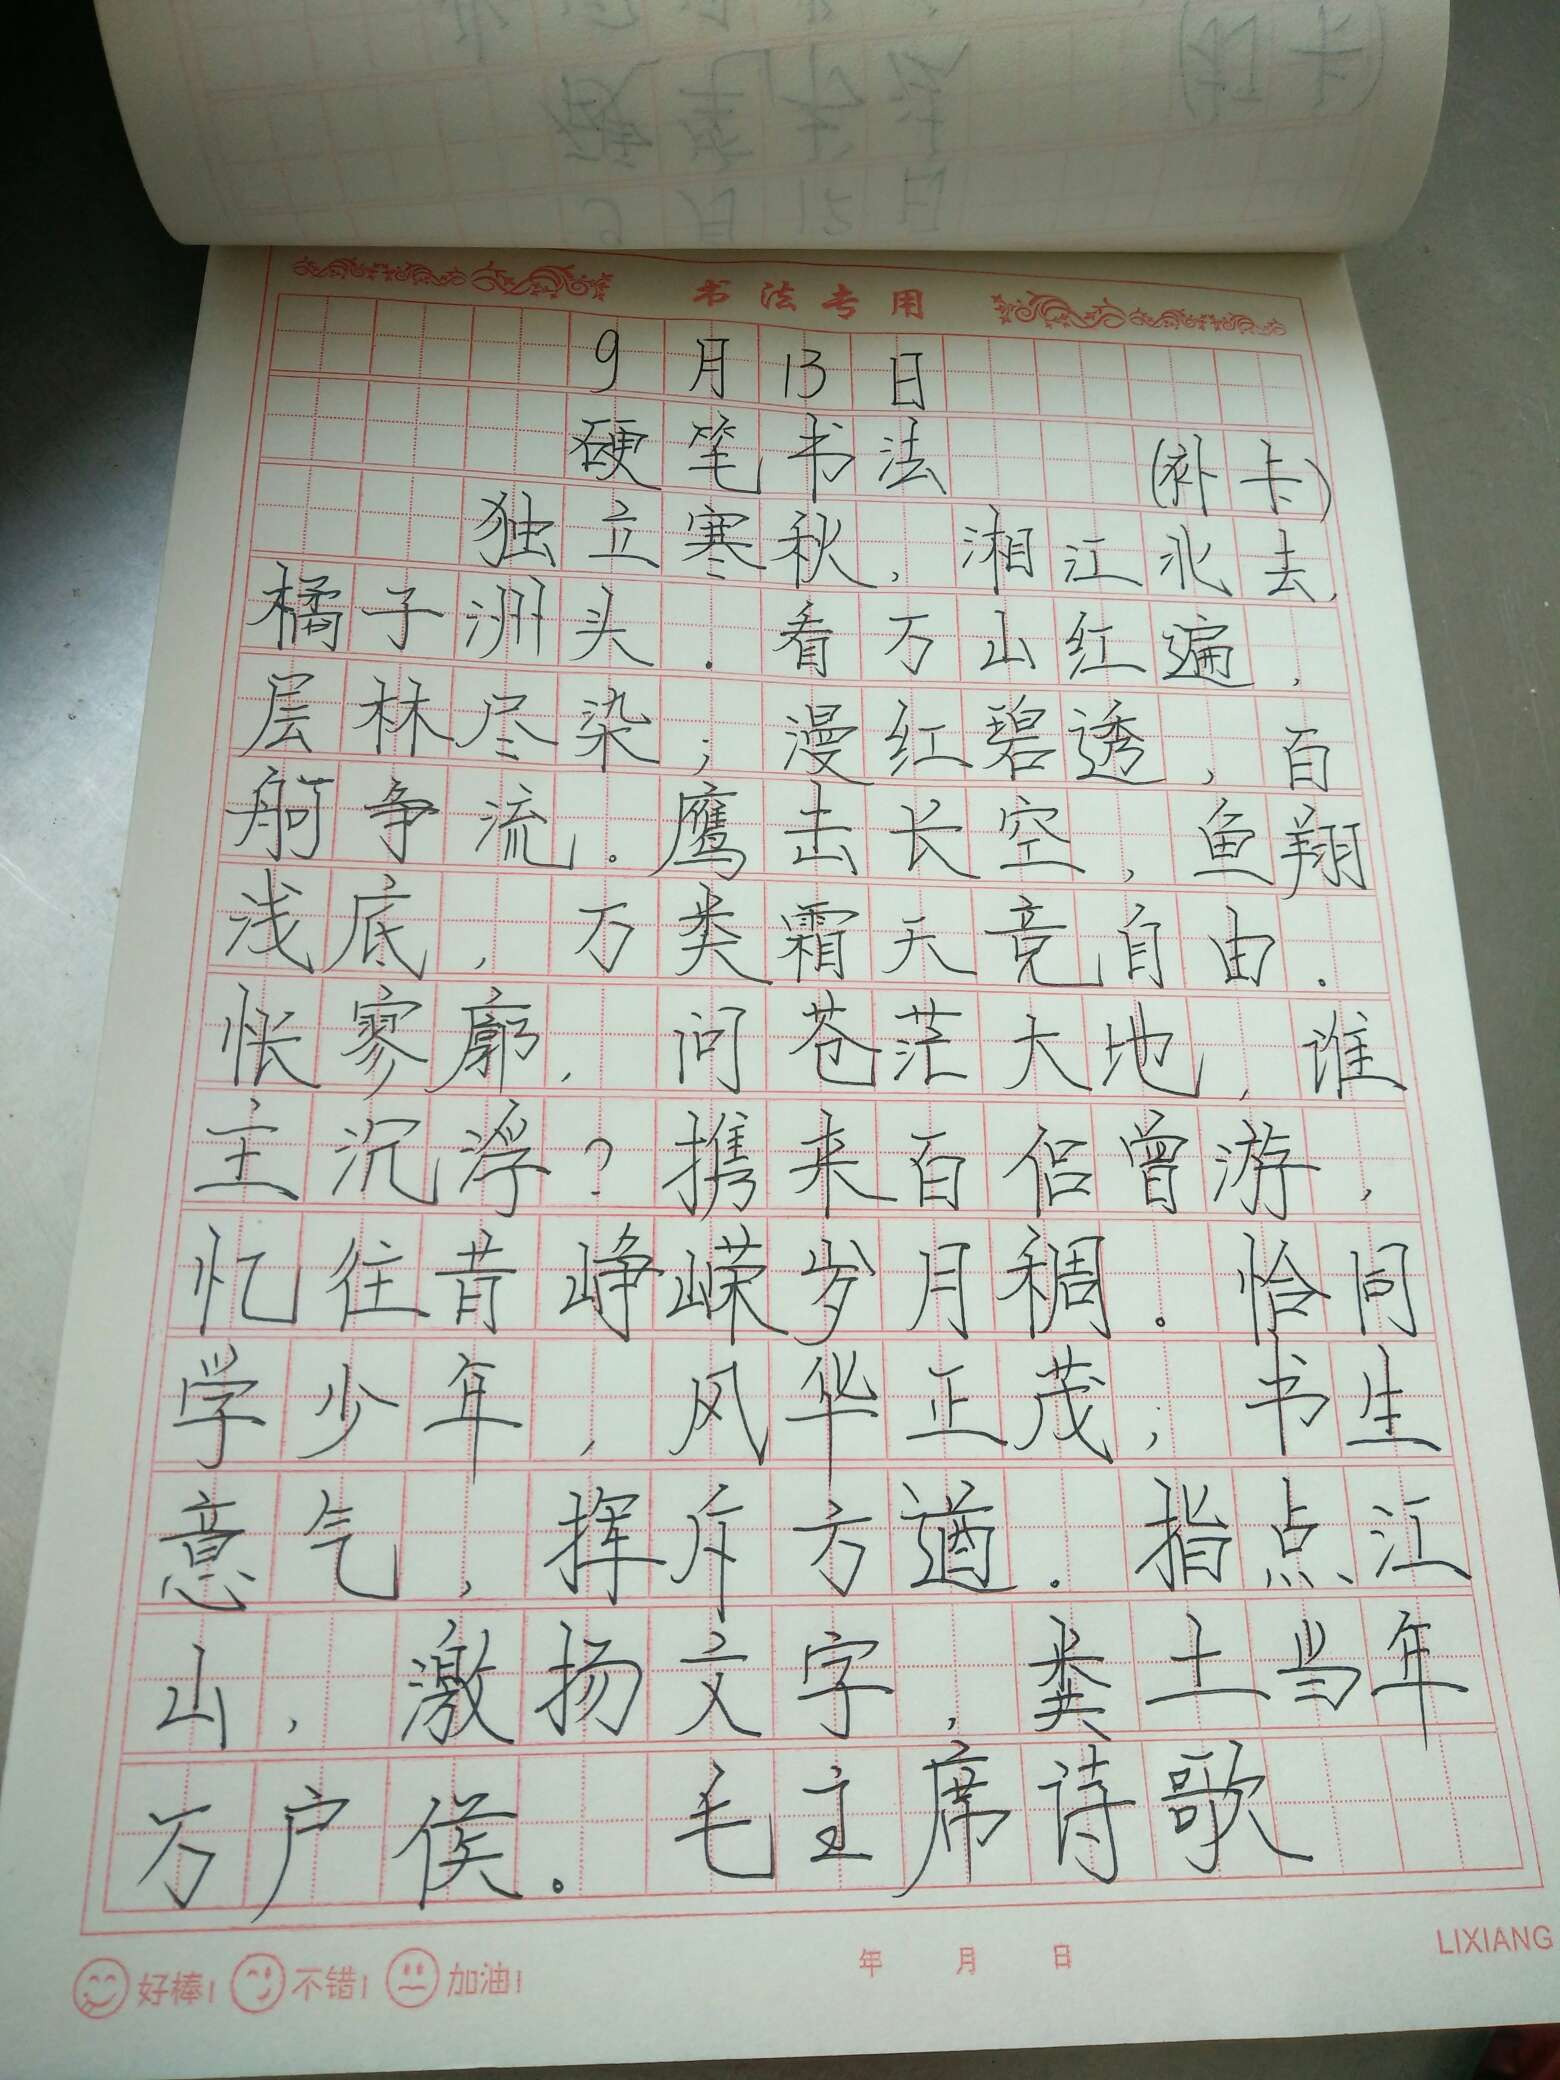 书法专用
9月13日
硬笔书法 (补卡)
独立寒秋,湘江北去,
橘子洲头.看万山红遍,
层林尽染;漫红碧透,百
舸争流.鹰击长空,鱼翔
浅底,万类霜天竞自由.
怅寥廓,问苍茫大地,谁
主沉浮?携来百侣曾游,
忆往昔峥嵘岁月稠.恰同
学少年,风华正茂;书生
意气,挥斥方遒.指点江
山,激扬文字,粪土当年
万户侯。毛主席诗歌
好棒! 不错! 加油! 年 月 日 LIXIANG